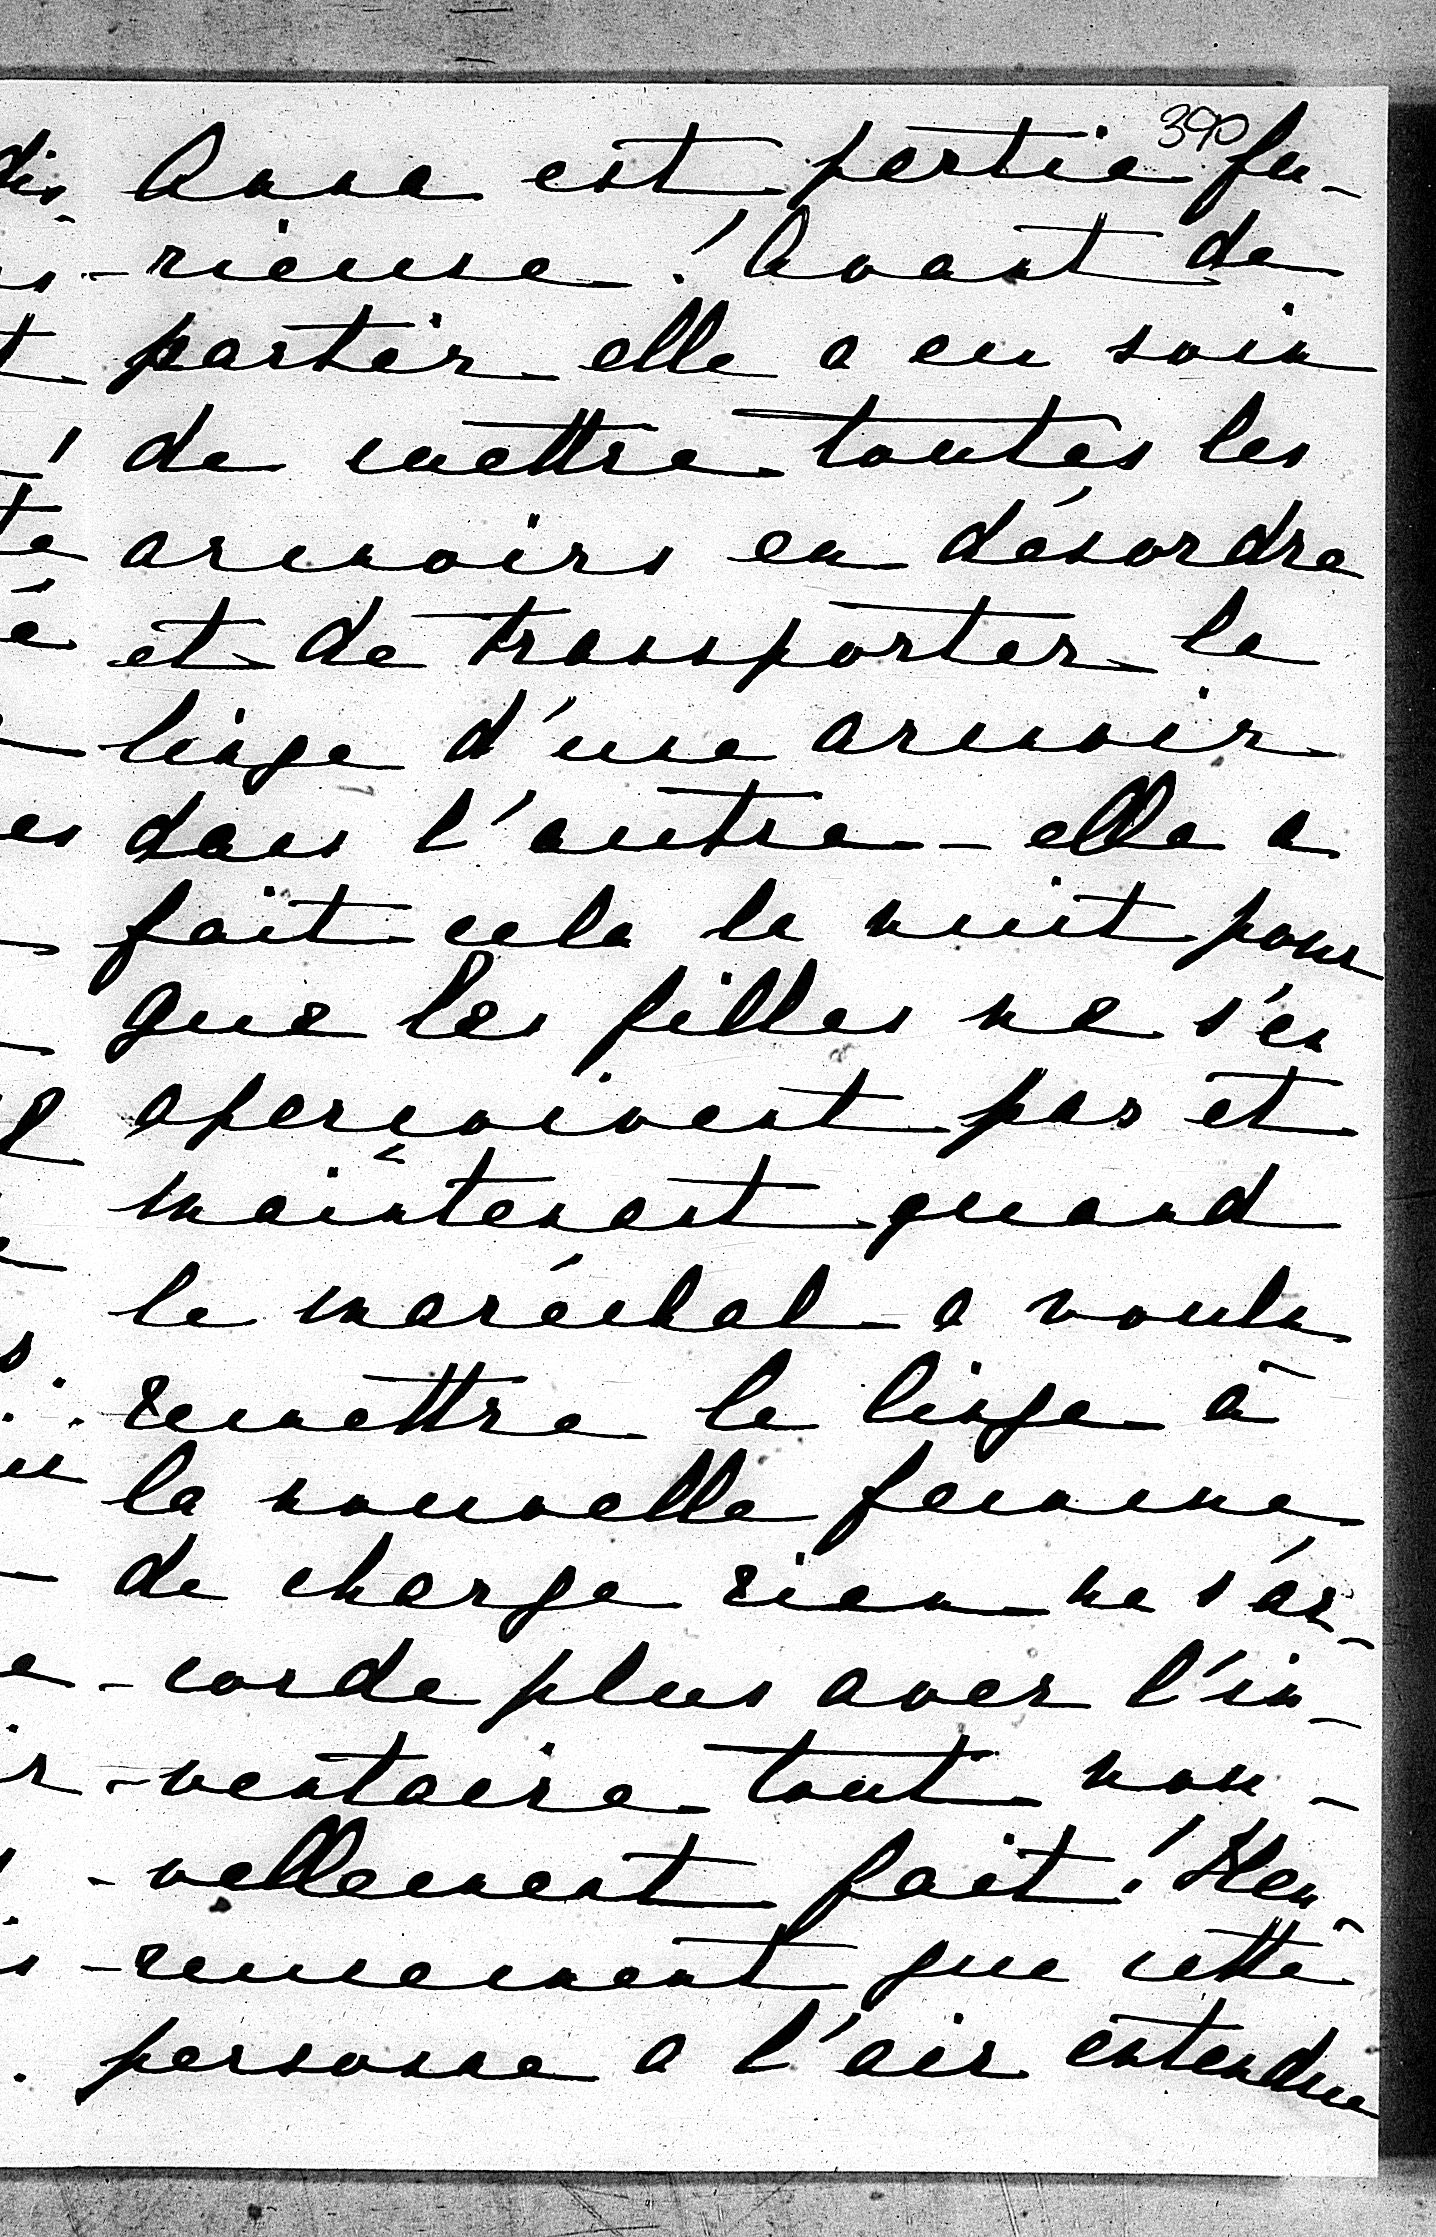 390
Anna est partie fu-
-rieuse! Avant de
partir elle a eu soin
de mettre toutes les
armoirs en désordre
et de transporter le
linge d'une armoir
dans l'autre - elle a
fait cela la nuit pour
que les filles ne s'en
aperçoivent pas et
maintenant quand
le maréchal a voulu
remettre le linge à
la nouvelle femme
de charge rien ne s'ac-
-corde plus avec l'in-
-ventaire tout nou-
-vellement fait! Heu-
-reusement que cette
personne a l'air entendue